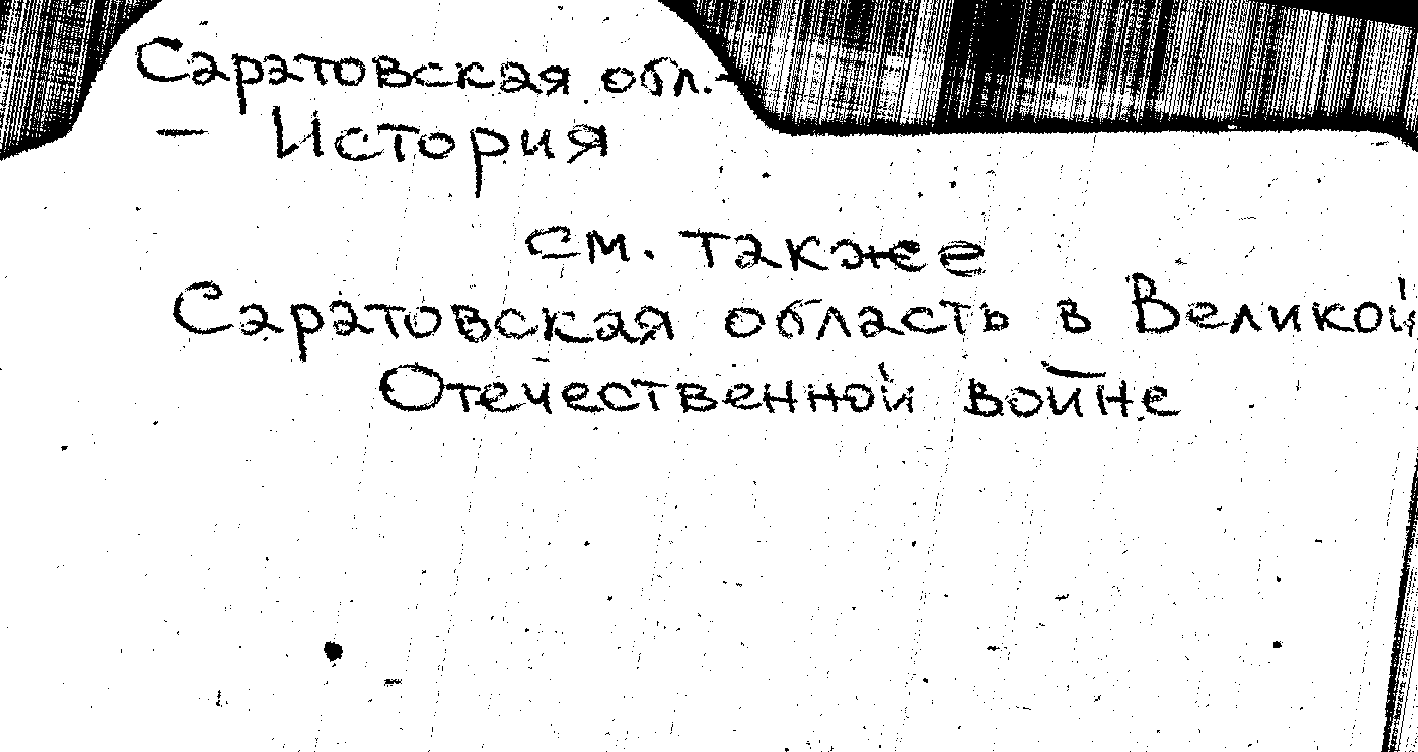 Саратовская обл.-
— История
см. также
Саратовская область в Великой
Отечественной войне